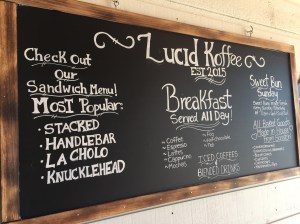 Lucid Koffee
EST. 2015
Check Out
Our
Sandwich Menu!
Most Popular:
· STACKED
· HANDLEBAR
· LA CHOLO
· KNUCKLEHEAD
Breakfast
Served All Day!
~ Coffee
~ Espresso
~ Lattes
~ Mochas
~ Hot Chocolate
~ Tea
ICED COFFEES
BLENDED DRINKS
Sweet Bun
Sunday
All Baked Goods
Made in House